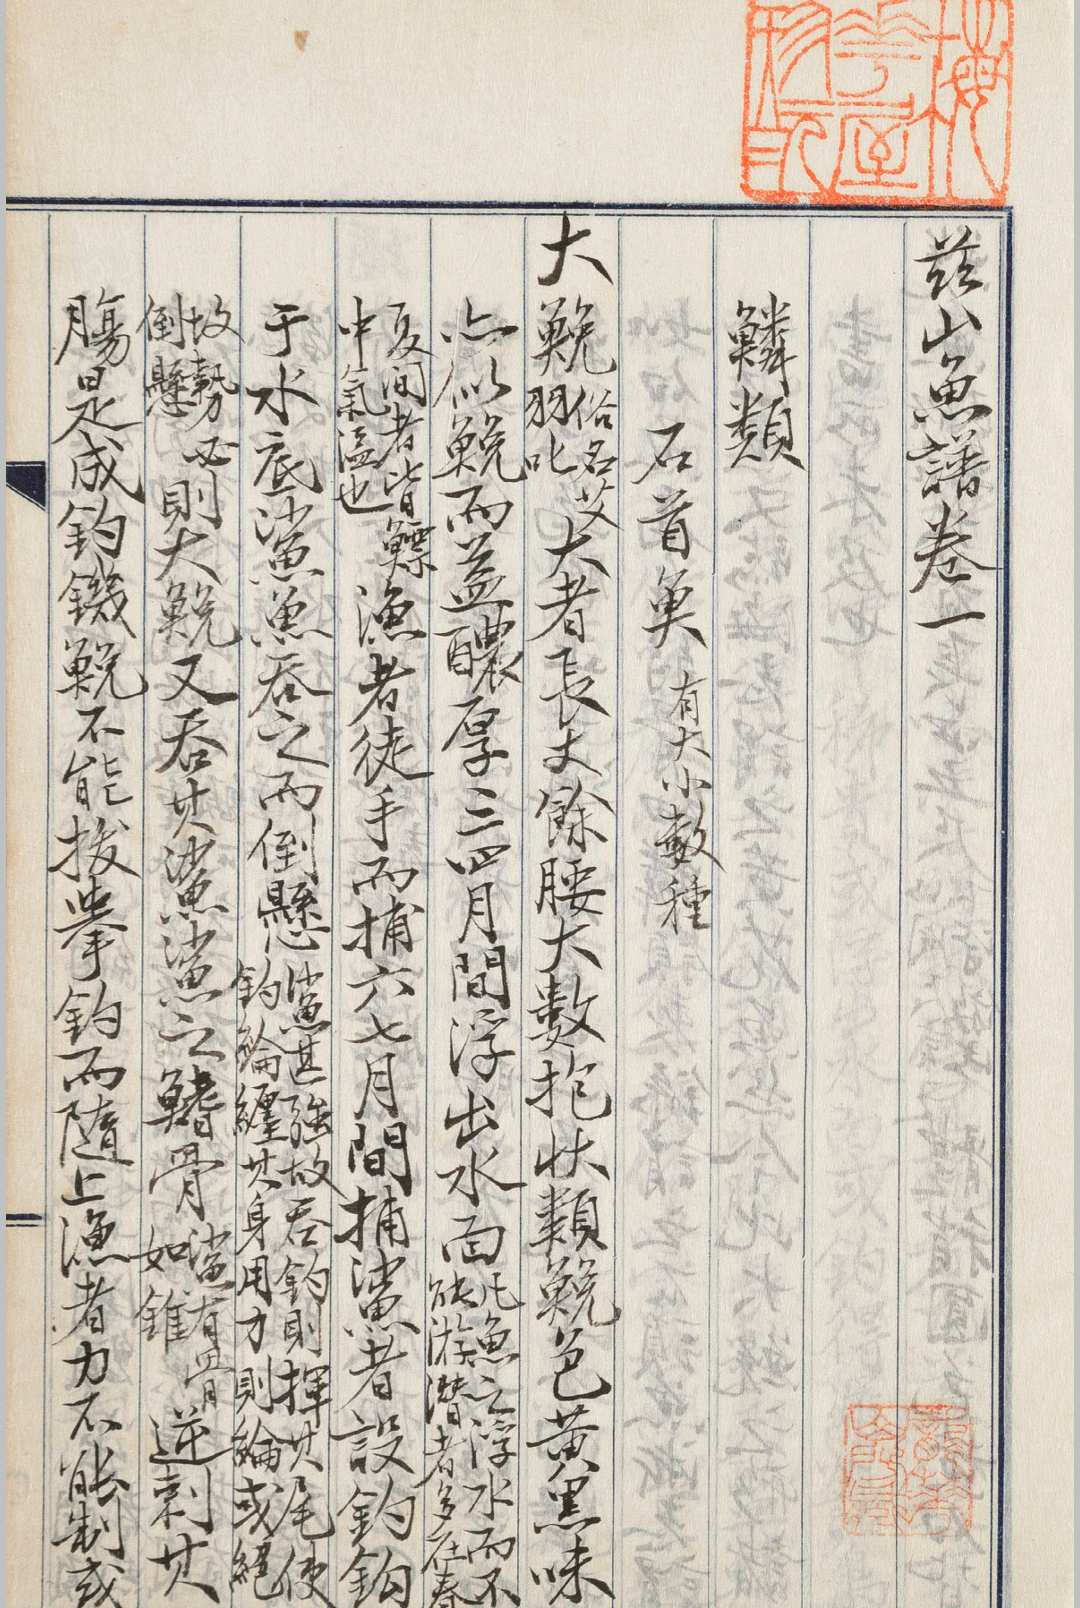 茲山魚譜卷一
鱗類
石首魚 有大小數種
大鮸 俗名艾羽叱 大者長丈餘腰大數抱狀類鮸色黃黑味
亦似鮸而益醲厚三四月間浮出水面 凡魚之浮水而不能游潛者多在春
夏间者皆鰾中氣溢也 漁者徒手而捕六七月間捕鯊者設釣鉤
于水底鯊魚吞之而倒懸 鯊甚強故吞釣則揮其尾使釣綸纏其身用力則綸或絕
故勢必倒懸 則大鮸又吞其鯊鯊之鰭骨 鯊有骨如錐 逆刺其
膓是成釣鐖鮸不能拔擧釣而隨上漁者力不能制或